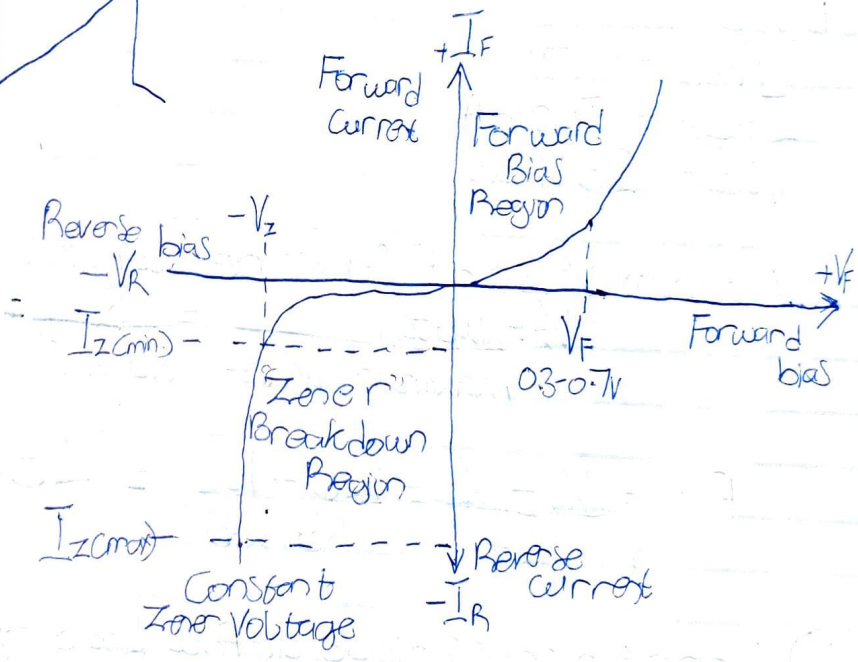 +I_F
Forward
Current
Forward
Bias
Region
-V_Z
Reverse bias
-V_R
+V_F
I_Z(min)
V_F
0.3-0.7V
Forward
bias
"Zener"
Breakdown
Region
I_Z(max)
Reverse
Current
-I_R
Constant
Zener Voltage